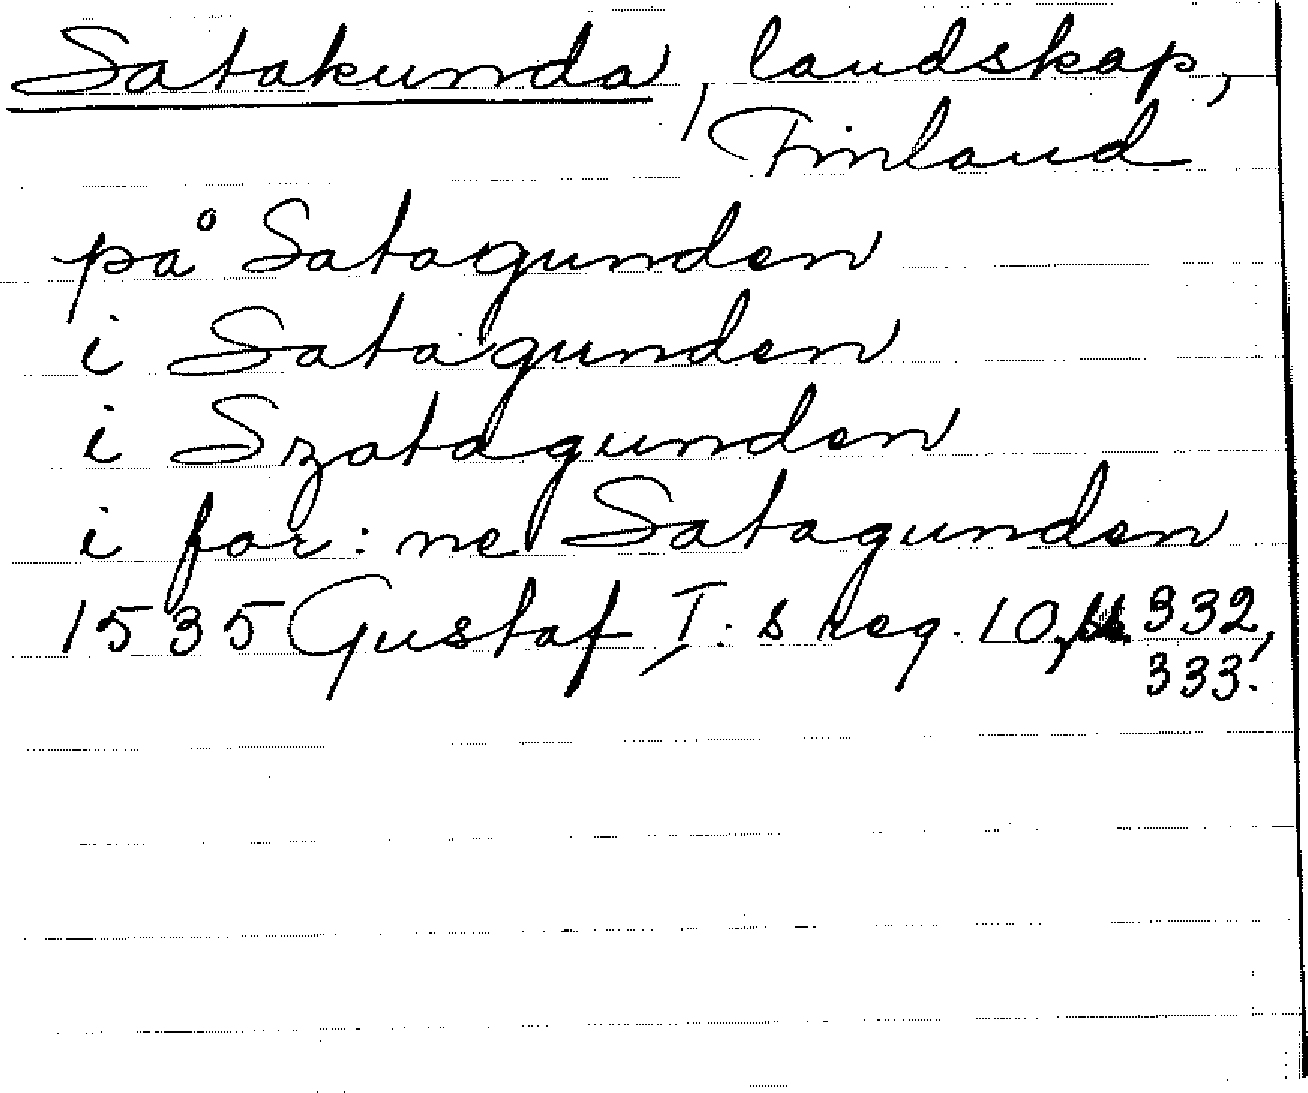 Satakunda, landskap,
Finland
på Satagunden
i Satagunden
i Szatagunden
i for:ne Satagunden
1535 Gustaf I:s reg. 10, 332,
333.